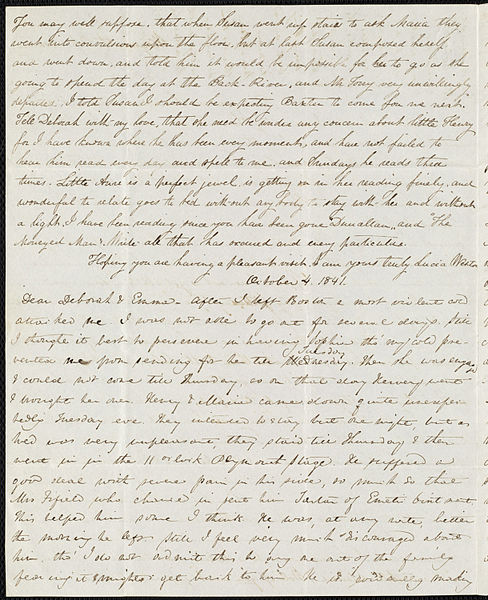 You may well suppose, that when Susan went up stairs to ask Maria they
went into convulsions upon the floor, but at last Susan composed herself
and went down, and told him it would be impossible for her to go as she
going to spend the day at the Back-River, and Mr Torry very unwillingly
departed. I told Susan I should be expecting Baxter to come for me next.
Tell Deborah with my love, that she need be under any concern about little Henry
for I have known where he has been every moment, and have not failed to
hear him read every day and spell to me, and Sundays he reads three
times. Little Anne is a perfect jewel, is getting on in her reading finely, and
wonderful to relate goes to bed without any body to stay with her and without
a light. I have been reading since you have been gone Dunallan, and "The
Moneyed Man". Write all that has occured and every particular.
Hoping you are having a pleasant visit. I am yours truly Lucia Weston
October 4. 1841.
Dear Deborah & Emma- After I left Boston a most violent cold
attacked me I was not able to go out for several days. Still
I thought it best to persevere in having Sophia tho my cold pre-
vented me from sending for her till Tuesday Wednesday. Then she was engaged
& could not come till Thursday, so on that day Hervey went
& brought her over. Henry & Maria came down quite unexpec
tedly Tuesday eve. They intended to stay but one night, but as
Wed was very unpleasant, they staid till Thursday & then
went in in the 11 o'clock Plymouth Stage. He suffered a
good deal with severe pain in his side, so much so that
Mrs Fifield who chanced in sent him Tartar of Emetic ointment
This helped him some I think. He was, at any rate, better
the morning he left. Still I feel very much discouraged about
him, tho' I do not admit this to any one out of the family
fearing it might get back to him. He is making